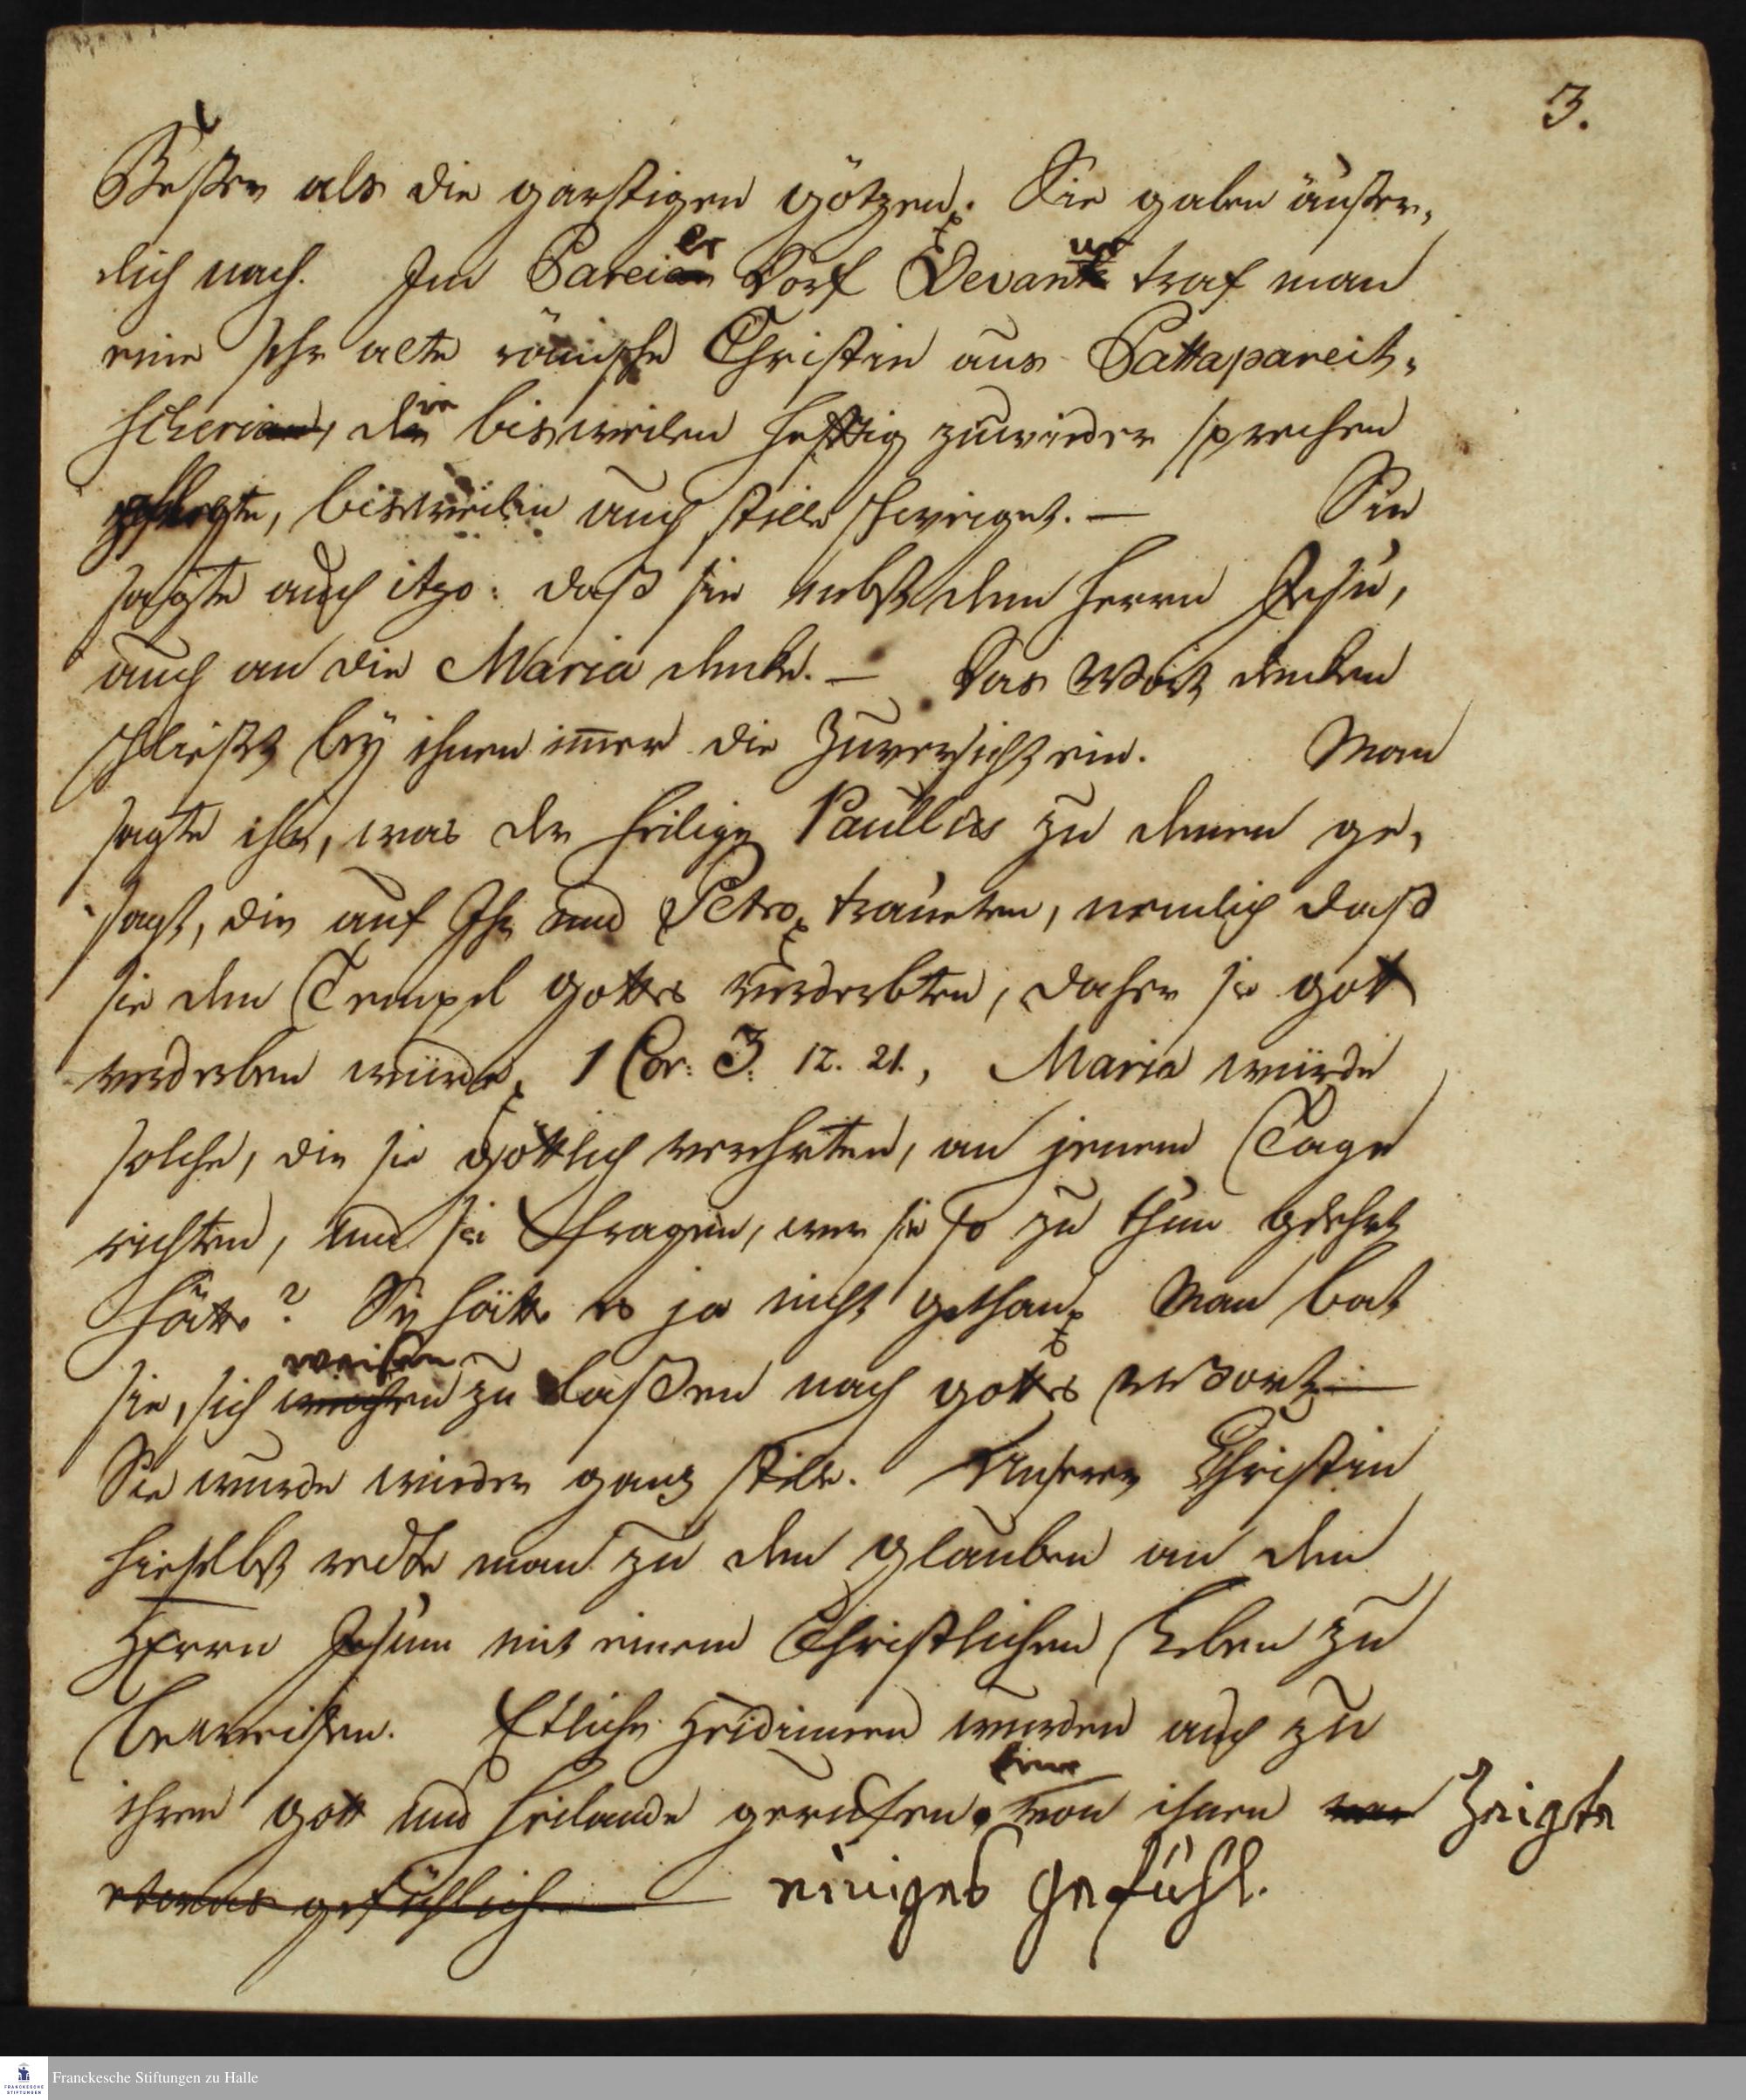 3.
Besser als die garstigen götzen. Sie gaben äußer-
lich nach. Im Pareier Dorf Devanur traf man
eine sehr alte römische Christin aus Pattapareit-
scheri, die bisweilen heftig zuwieder sprechen
pflegte, bisweilen auch stille schweiget. — Sie
sagte auch itzo: daß sie nebst dem Herrn Jesu,
auch an die Maria denke. — Das Wort denken
schließt bey ihnen im̅er die Zuversicht ein. Man
sagte ihr, was der heilige Paullus zu denen ge-
sagt, die auf Ihn und Petro traueten, nemlich daß
sie den Tempel gottes verderbten, daher sie gott
verderben würde, 1 Cor: 3. 12. 21., Maria würde
solche, die sie göttlich verehrten, an jenem Tage
richten, und sie fragen, wer sie so zu thun gelehrt
hätte? Sie hätte es ja nicht gethan. Man bat
sie, sich weisen zu laßen nach gottes Wort. —
Sie wurde wieder ganz stille. Unserer Christin
hieselbst redte man zu den glauben an den
HErrn Jesum mit einem Christlichen Leben zu
beweisen. Etliche Heidinnen wurden auch zu
ihrem gott und Heilande gerufen. Eine von ihnen zeigte
etwas gefühlich. einiges Gefühl.
Franckesche Stiftungen zu Halle
FRANCKESCHE
STIFTUNGEN